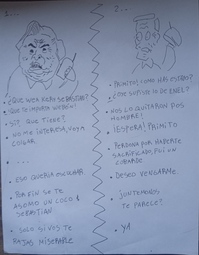 1...
• ¿QUE WEA NERO SEBASTIAN?
• QUE TE IMPORTA WEBEN!
• SI? QUE TIENE?
• NO ME INTERESA, VOYA COLGAR
• . . . .
• ESO QUERIA ESCUCHAR
SE TE
ASOMO UN COCO
SEBASTIAN
• SOLO SI VOS TE
DEJAS MISERABLE
2...
• PRIMITO! COMO HAS ESTADO?
• ¿TE SUPISTE LO DE ENEL?
• NOS LO QUITARON PES
HOMBRE!
• ¡ESPERA! PRIMITO
• PERDONA POR HABERTE
SACRIFICADO, FUI UN
COBARDE
• DESEO VENGARME
• JUNTEMONOS..
TE PARECE?
• YA